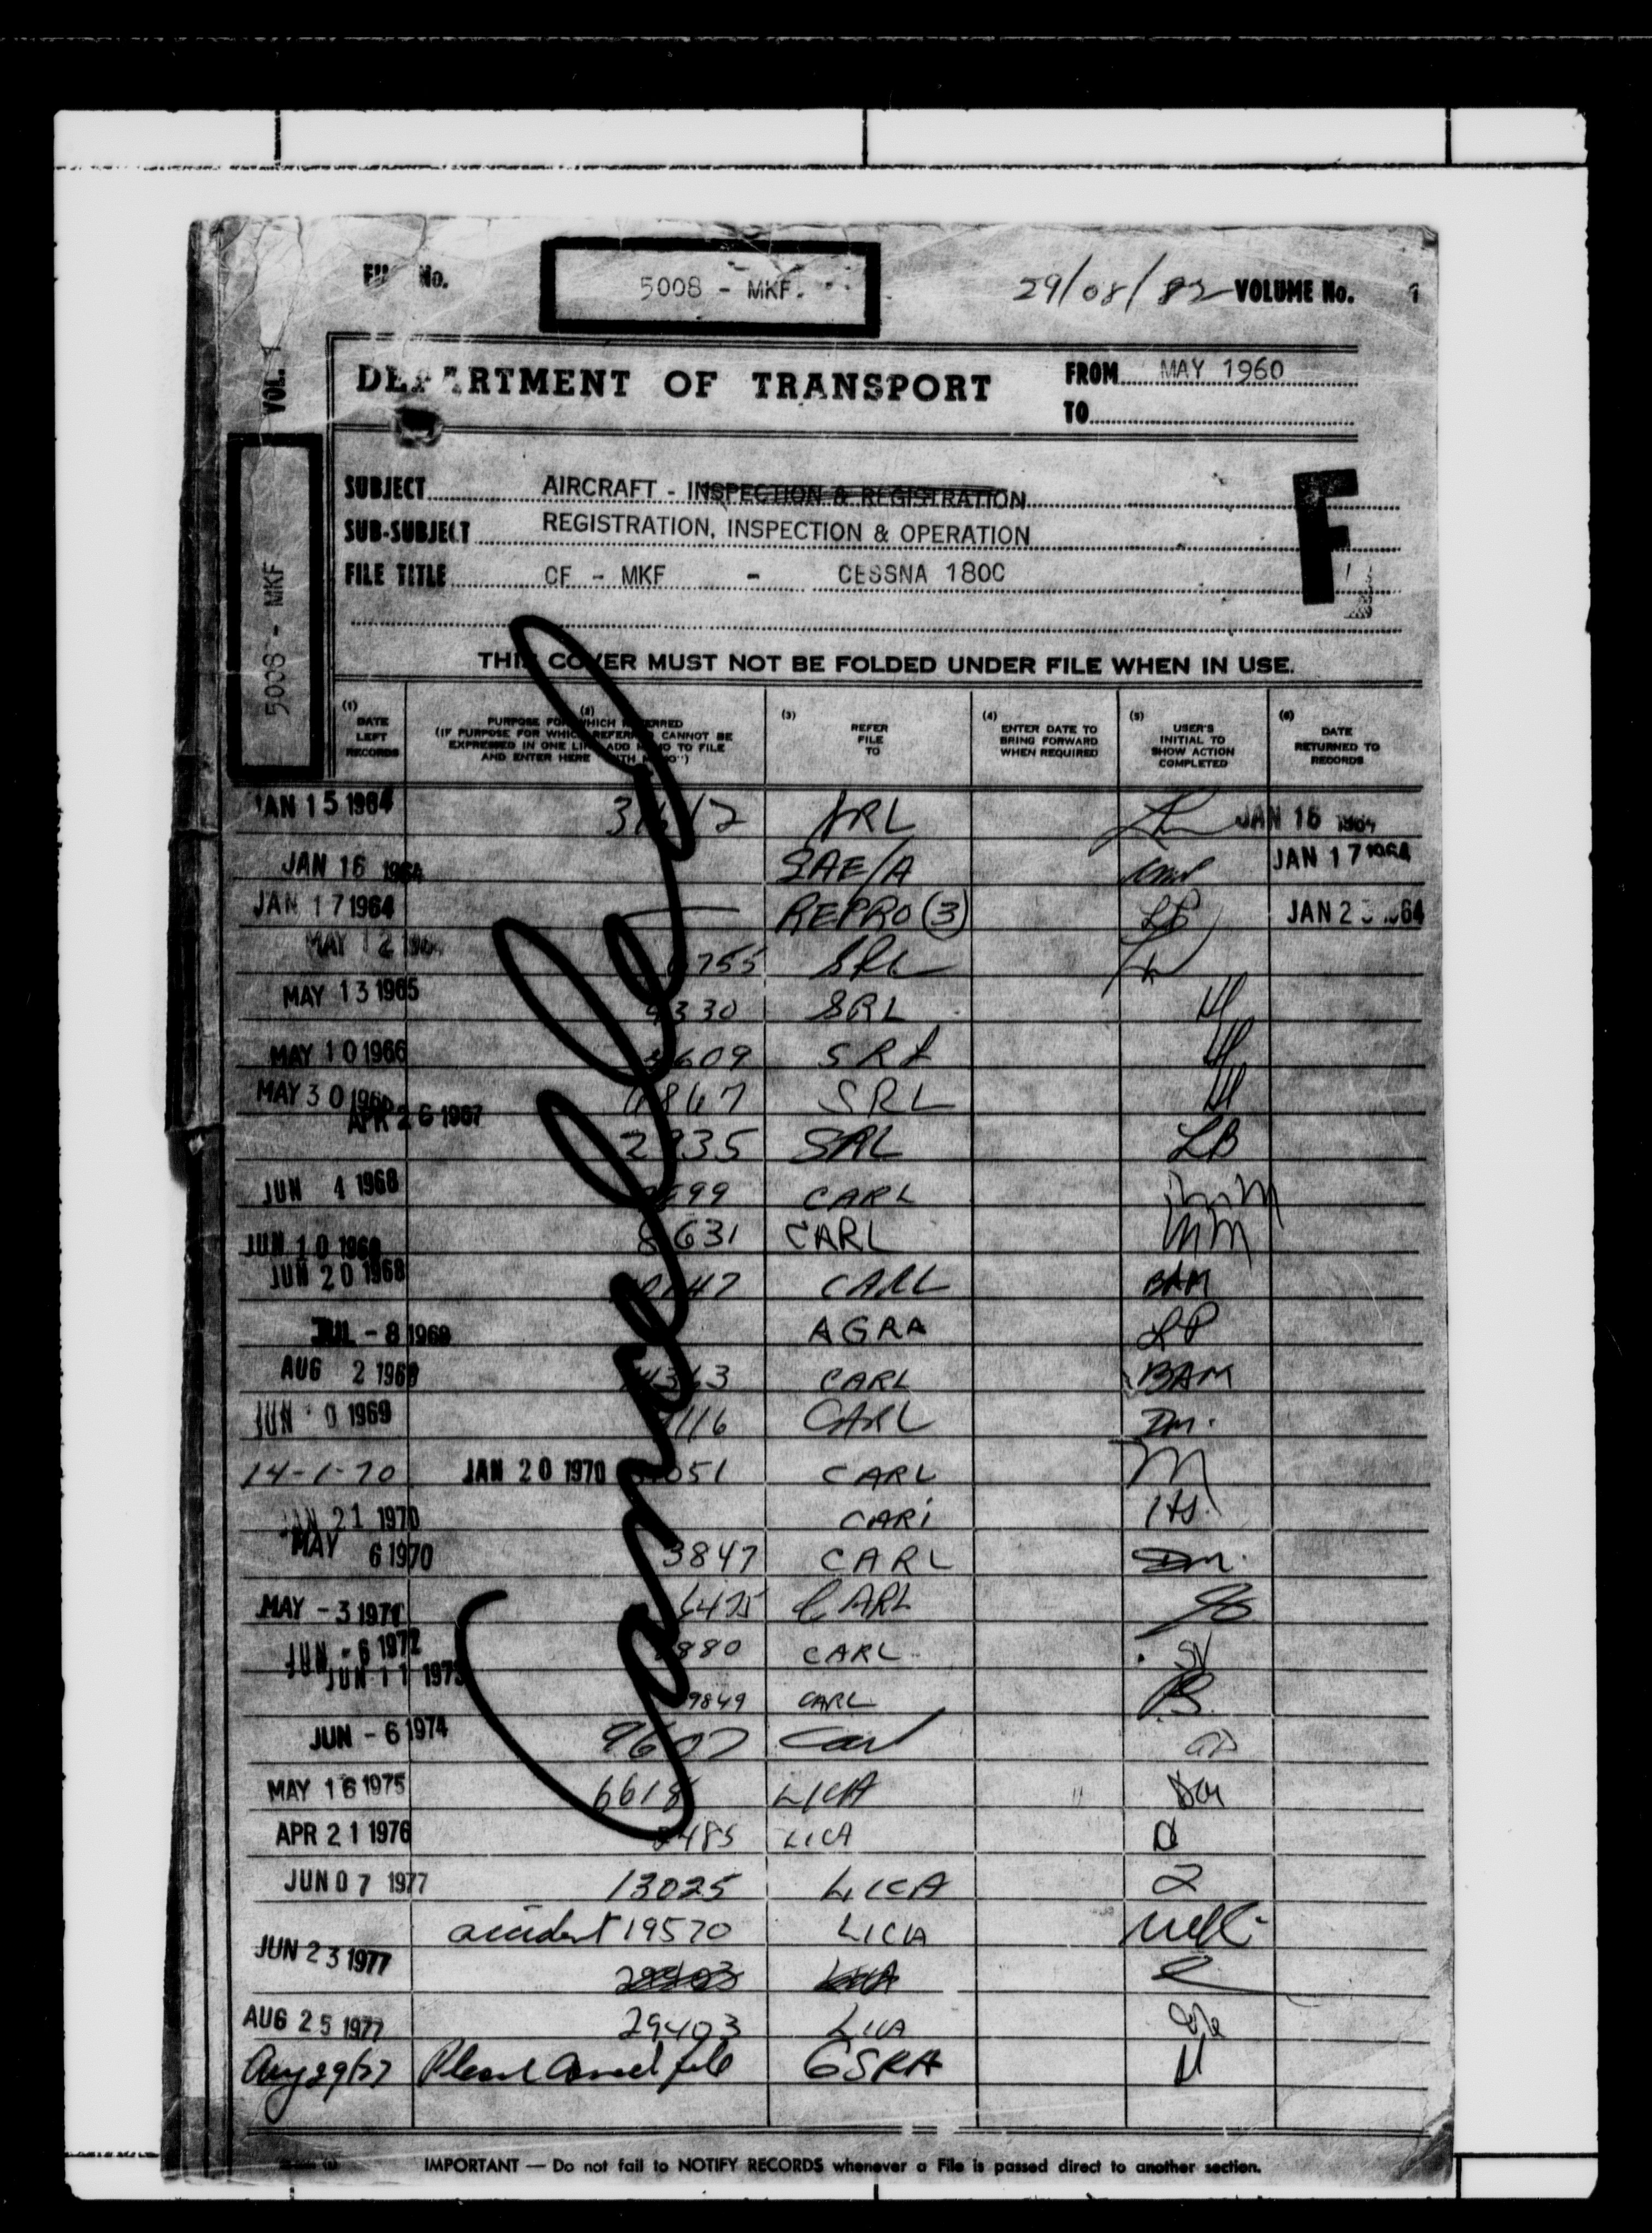 No.
5008 - MKF.
29/08/82 VOLUME No. 1
VOL.
DEPARTMENT OF TRANSPORT
FROM MAY 1960
TO
SUBJECT AIRCRAFT - INSPECTION & REGISTRATION
SUB-SUBJECT REGISTRATION, INSPECTION & OPERATION
FILE TITLE CF - MKF - CESSNA 180C
F
5008 - MKF
THIS COVER MUST NOT BE FOLDED UNDER FILE WHEN IN USE.
(1) DATE LEFT RECORDS
(2) PURPOSE FOR WHICH REFERRED
(IF PURPOSE FOR WHICH REFERRED CANNOT BE
EXPRESSED IN ONE LINE ADD MEMO TO FILE
AND ENTER HERE "WITH MEMO")
(3) REFER FILE TO
(4) ENTER DATE TO BRING FORWARD WHEN REQUIRED
(5) USER'S INITIAL TO SHOW ACTION COMPLETED
(6) DATE RETURNED TO RECORDS
Cancelled
JAN 15 1964 JAN 16 1964
JAN 16 1964 SAE/A JAN 17 1964
JAN 17 1964 REPRO (3) LB JAN 2 1964
MAY 12 755 SRL
MAY 13 1965 330 SRL
MAY 10 1966 609 SRL
MAY 30 1966 SRL
APR 26 1967 2935 SRL LB
JUN 4 1968 99 CARL
JUN 10 1968 8631 CARL MM
JUN 20 1968 47 CARL BAM
JUL - 8 1968 AGRA LP
AUG 2 1968 CARL BAM
JUN 0 1969 116 CARL DM.
14-1-70 JAN 20 1970 051 CARL M
JAN 21 1970 CARL
MAY 6 1970 3847 CARL DM.
MAY - 3 1971 6475 CARL
JUN - 6 1972 880 CARL SV
JUN 11 1973 9849 CARL
JUN - 6 1974 9607 Carl
MAY 16 1975 6618 LICA
APR 21 1976 485 LICA
JUN 07 1977 13025 LICA
accident 19570 LICA
JUN 23 1977 29403 LICA
AUG 25 1977 29403 LICA
Aug 29/77 Please Cancel file GSRA
IMPORTANT — Do not fail to NOTIFY RECORDS whenever a File is passed direct to another section.